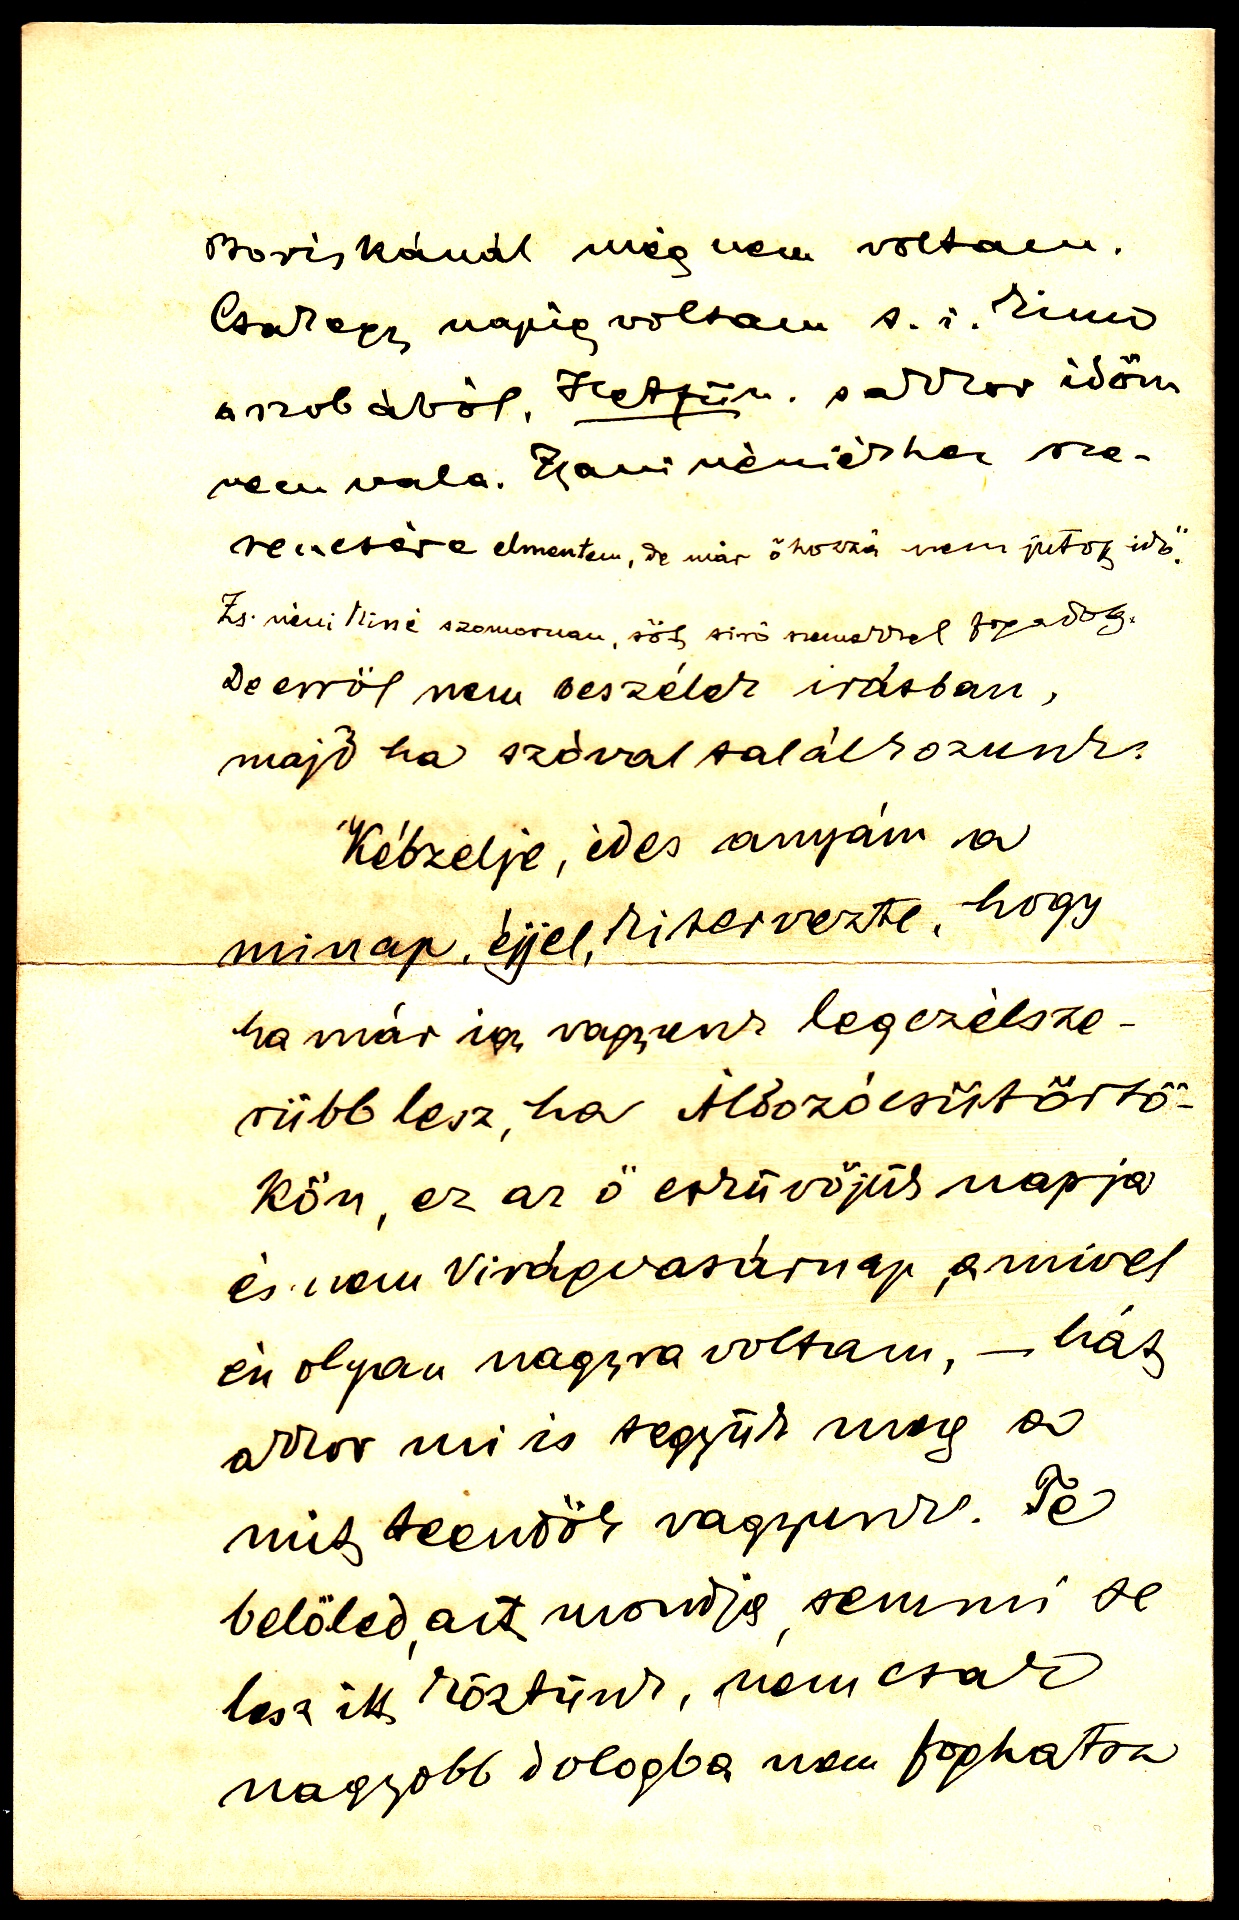 Boriskánál még nem voltam.
Csak egy napig voltam t. i. kinn
a szobából, Hétfőn. s akkor időm
nem vala. Zsani néniékhez sze-
rencsére elmentem, de már őhozzá nem jutott idő.
Zs. néni kissé szomoruan, sőt, siró szemekkel fogadott.
De erről nem beszélek irásban,
majd ha szóval találkozunk.
Kébzelje, édes anyám a
minap, éjjel, kitervezte, hogy
ha már igy vagyunk legczélsze-
rübb lesz, ha Áldozócsütörtö-
kön, ez az ő esküvőjük napja
és nem Virágvasárnap, amivel
én olyan nagyra voltam, — hát
akkor mi is tegyük meg a
mit teendők vagyunk. Te
belőled, azt mondja, semmi se
lesz itt köztünk, nemcsak
nagyobb dologba nem foghatsz